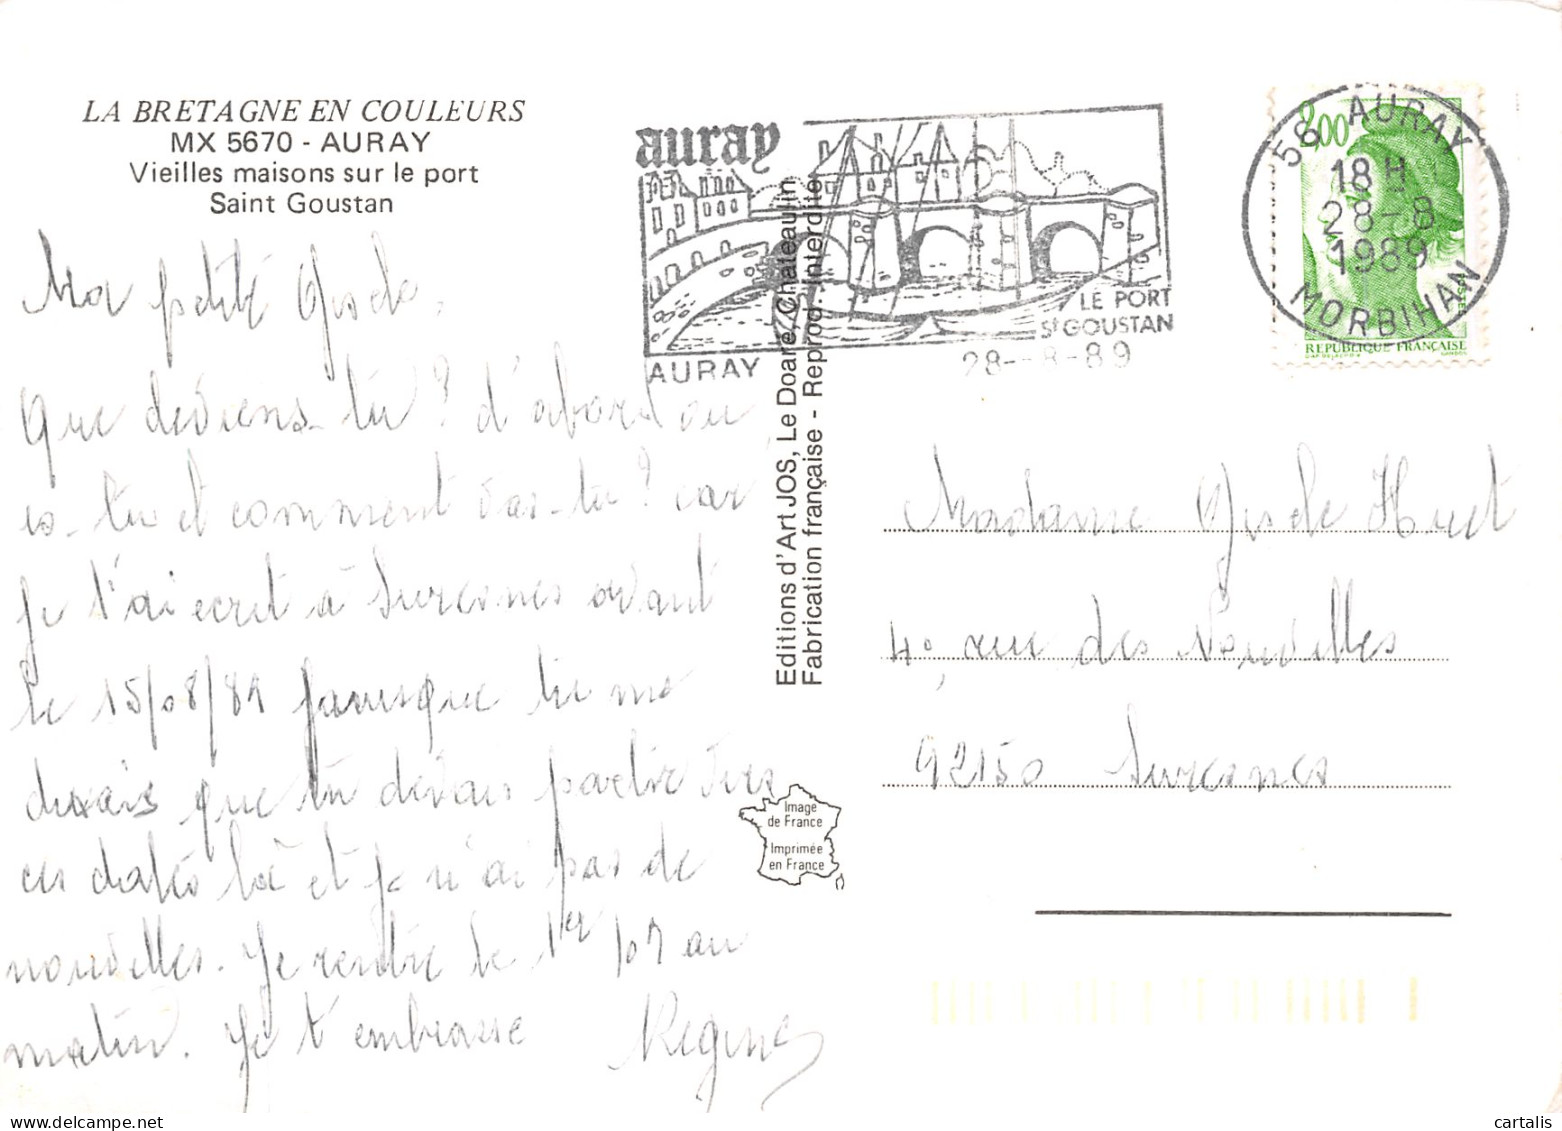 LA BRETAGNE EN COULEURS
MX 5670 - AURAY
Vieilles maisons sur le port
Saint Goustan
Ma petite Gisele,
Que deviens-tu ? d'abord ou
es-tu et comment vas-tu ? car
je t'ai ecrit à Suresnes avant
le 15/08/89 parisque tu me
disais que tu devais partir vers
ces dates là et je n'ai pas de
nouvelles. Je rentre le 1er /09 au
matin. Je t'embrasse Regine
auray
LE PORT
St GOUSTAN
AURAY
28-8-89
Editions d'Art JOS, Le Doaré, Châteaulin
Fabrication française - Reprod. Interdite
Image
de France
Imprimée
en France
2,00
REPUBLIQUE FRANÇAISE
56 AURAY
18 H
28-8
1989
MORBIHAN
Madame Gisele Huet
40, rue des Nouvelles
92150 Suresnes
cartalis